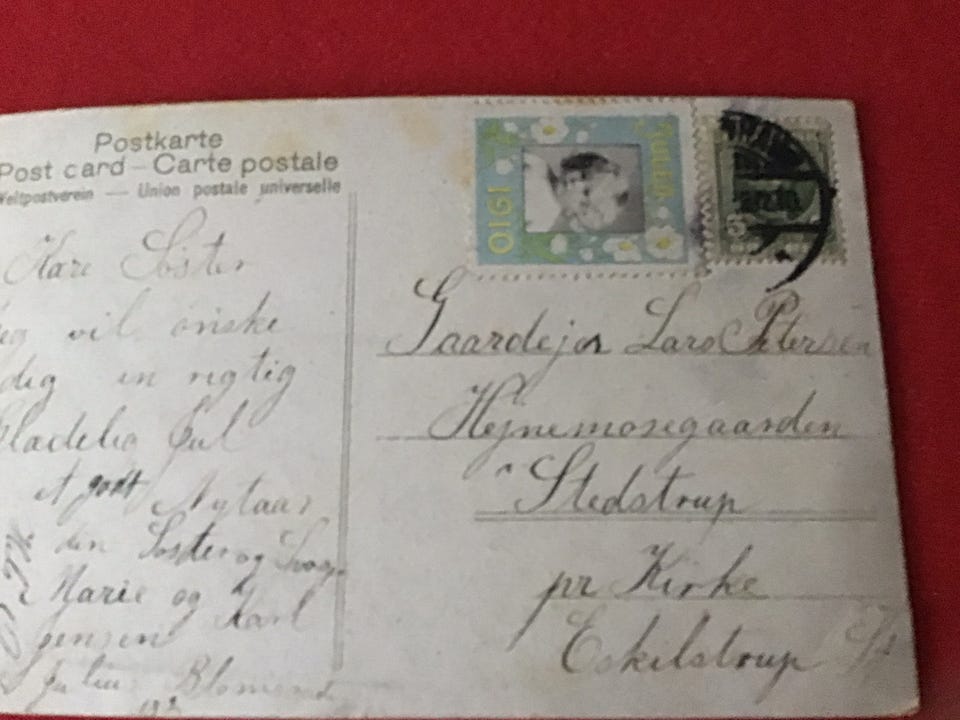 Postkarte
Post card – Carte postale
Weltpostverein — Union postale universelle
JULEN
1910
5
Kære Søster
Jeg vil ønske
dig en rigtig
Glædelig Jul
et godt Nytaar
din Søster og Svoger
Marie og Karl
Jensen
Gaardejer Lars Petersen
Hejnemosegaarden
Stedstrup
pr Kirke
Eskilstrup